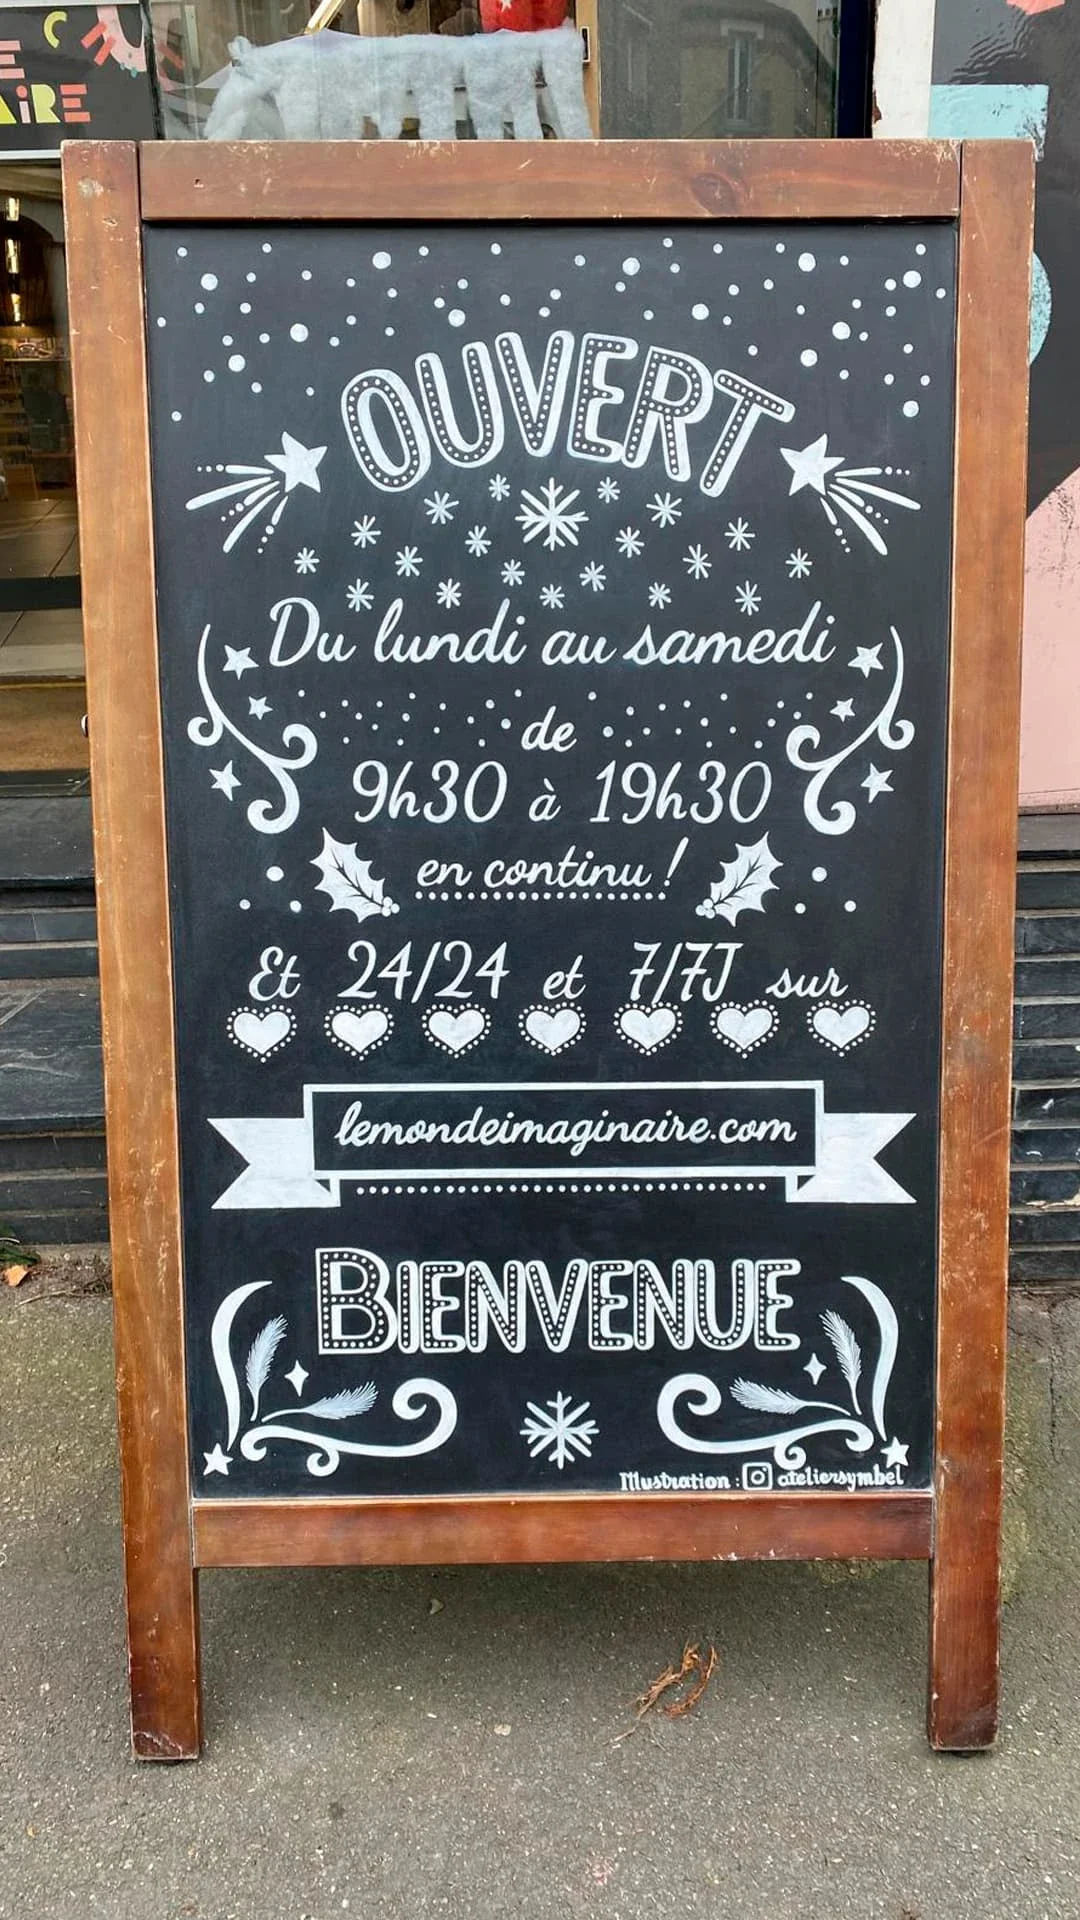 E
AiRE
OUVERT
Du lundi au samedi
de
9h30 à 19h30
en continu !
Et 24/24 et 7/7J sur
lemondeimaginaire.com
BIENVENUE
Illustration : ateliersymbel